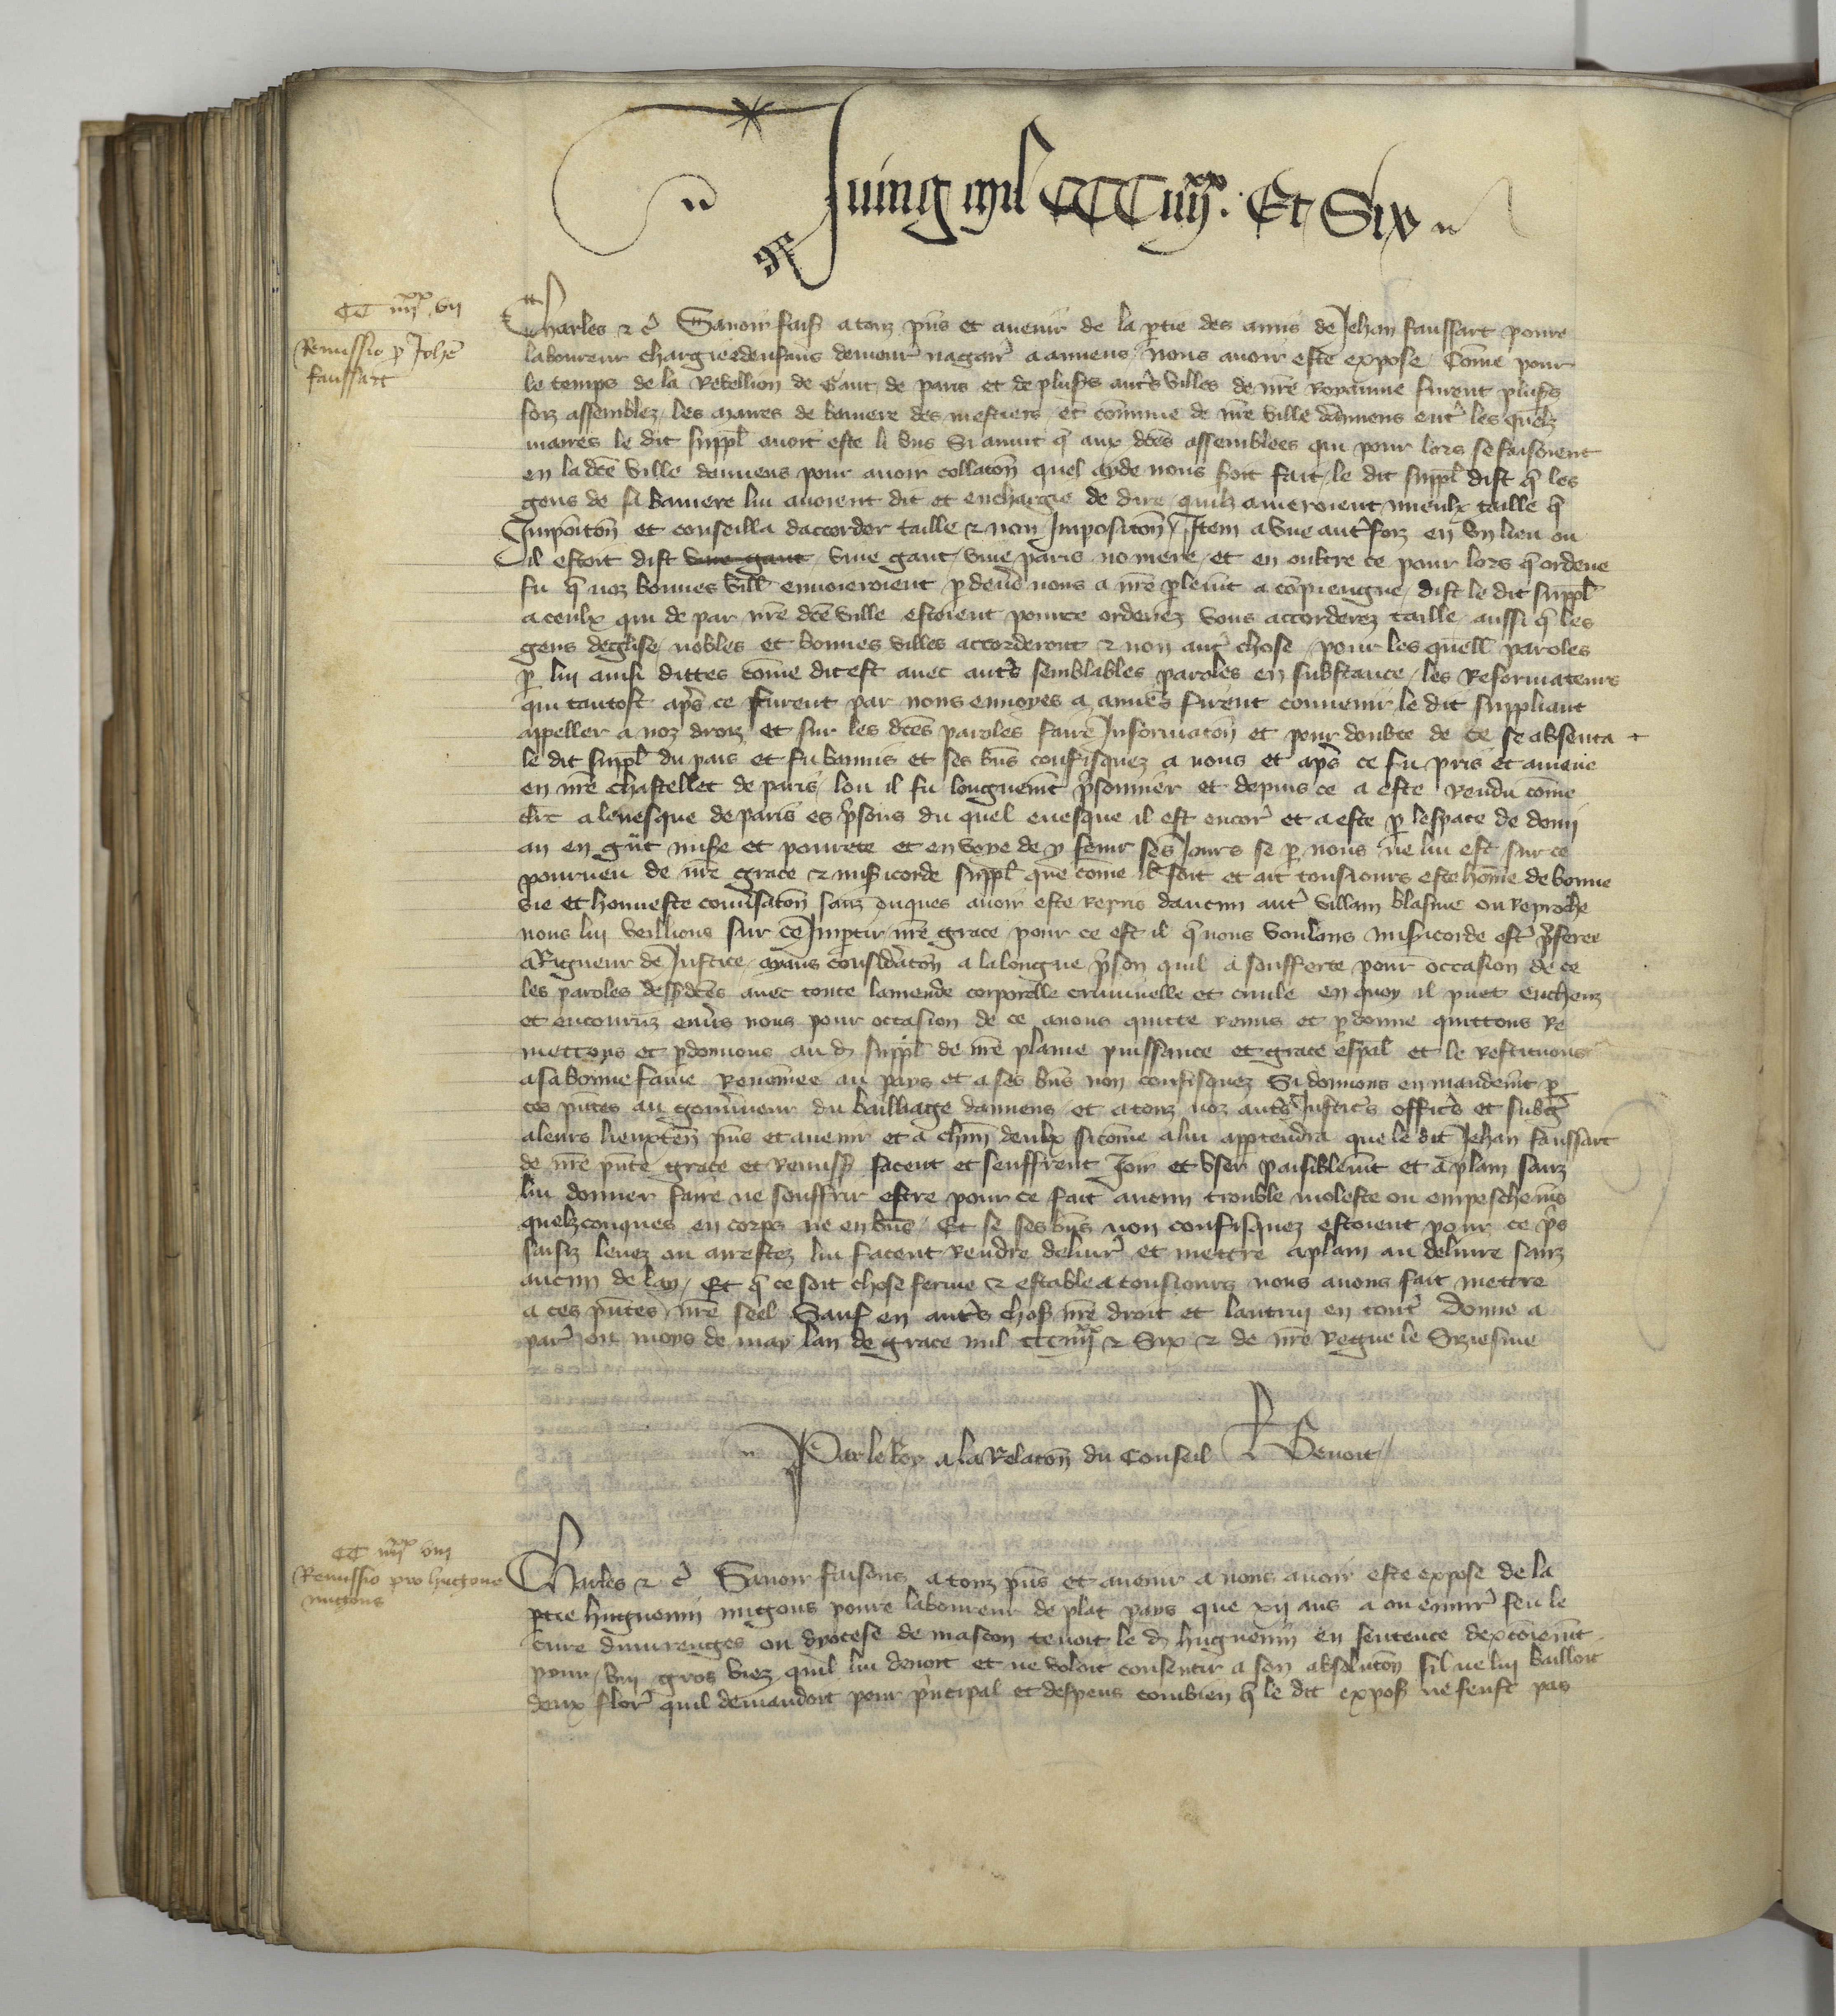 Juing mil CCC iiijxx. Et Six
CC iiijxx vij
Remissio p Johe
faussart
Charles & c̃ Sauoir fais̃ a touz p̃ns et auenir de la p̃tie des amis de Jehan faussart poure
laboureur chargie denfans demour̃ nagair̃ a amiens / Nous auoir este expose / Com̃e pour
le temps de la Rebellion de Gant de paris et de plus̃s autr̃s villes de nr̃e Royaume furent plus̃s
foiz assemblez / les maires de baniere des mestiers et com̃une de nr̃e ville damiens entr̃ les quelz
maires le dit suppl̃ auoit este li vns Si auint q̃ aux dc̃es assemblees qui pour lors se faisoient
en la dc̃e ville damiens pour auoir collac̃on quel ayde nous soit fait / le dit suppl̃ dist q̃ les
gens de sa baniere lui auoient dit et enchargie de dire / quilz ameroient mieulx taille q̃
Imposic̃on et conseilla daccorder taille & non Imposic̃on / Item a vne autr̃ foiz en vn lieu ou
il estoit dist viue gant / viue gant / viue paris no mere / et en oultre ce pour lors q̃ ordene
fu q̃ noz bonnes vill̃ enuoieroient p̃ deu̾s nous a nr̃e p̃lem̃t a compiengne / dist le dit suppl̃
a ceulx qui de par nr̃e dc̃e ville estoient pource ordenez vous accorderez taille / aussi q̃ les
gens deglise / nobles et bonnes villes accorderont & non autr̃ chose / pour les quell̃ paroles
p̃ lui ainsi dittes com̃e dit est auec autr̃s semblables paroles en substance / les Reformateurs
qui tantost apr̃s ce furent par nous enuoyes a amiẽs firent conuenir le dit suppliant
appeller a noz droiz et sur les dc̃es paroles faire Informac̃on et pour doubte de ce se absenta
le dit suppl̃ du pais et fu bannis et ses bñs confisquez a nous et apr̃s ce fu pris et amene
en nr̃e chastellet de paris lou il fu longuem̃t p̃sonnier et depuis ce a este Rendu com̃e
clerc a leuesque de paris es p̃sons du quel euesque il est encor̃ et a este p̃ lespace de demi
an en g̃nt mis̃e et pourete et en voye de y fenir ses Jours se p̃ nous ne lui est sur ce
pourueu de nr̃e grace & mis̃icorde suppl̃ que com̃e il soit et ait tousiours este hom̃e de bonne
vie et honneste conu̾sac̃on sanz onques auoir este Repris daucun autr̃ villain blasme ou Reproche
nous lui veillions sur ce Imp̃tir nr̃e grace / pour ce est il q̃ nous voulans mis̃icorde estr̃ p̃feree
a Rigueur de Justice / ayans considerac̃on a la longue p̃son quil a soufferte pour occasion de ce
les paroles dess̃dc̃es auec toute lamende corporelle criminelle et ciuile en quoy il puet encheuz
et encouruz enu̾s nous pour occasion de ce auons quitte Remis et p̃donne quittons Re
mettons et p̃donnons au d̃ suppl̃ de nr̃e plaine puissance et grace esp̃al et le Restituons
a sa bonne fame Renom̃ee au pays et a ses bñs non confisquez Si donnons en mandem̃t p̃
ces p̃ntes au gouu̾neur du bailliage damiens / et a touz noz autr̃s Justic̃s offic̃s et subg̃
a leurs lieuxten̾ p̃ns et auenir et a chũn deulx si com̃e a lui app̃tendra que le dit Jehan faussart
de nr̃e p̃nte grace et Remiss̃ facent et seuffrent Joir et vser paisiblem̃t et a plain sanz
lui donner faire ne souffrir estre pour ce fait aucun trouble moleste ou empeschem̃s
quelzconques en corps ne en bñs / Et se ses bñs non confisquez estoient pour ce p̃s
saisiz leuez ou arrestez lui facent Rendre deliur̃ et mettre a plain au deliure sanz
aucun delay / Et q̃ ce soit chose ferme & estable a tousiours nous auons fait mettre
a ces p̃ntes nr̃e seel Sauf en autr̃s chos̃ nr̃e droit et lautruy en tout̃ Donne a
par̃ ou moys de may lan de grace mil CCC iiijxx & Six & de nr̃e Regne le Siziesme
Par le Roy a la Relac̃on du Conseil R Benoit
CC iiijxx viij
Remissio pro hugone
migons
Charles & c̃ Sauoir faisons a touz p̃ns et auenir a nous auoir este expose de la
p̃tie huguenin migons poure laboureur de plat pays que xij ans a ou enuir̃ feu le
cure dunrenges ou dyocese de mascon tenoit le d̃ huguenin en sentence dexcõiem̃t
pour viij gros viez quil lui deuoit et ne voloit consentir a son absoluc̃on sil ne lui bailloit
deux flor̃ quil demandoit pour p̃ncipal et despens combien q̃ le dit expos̃ ne feust pas